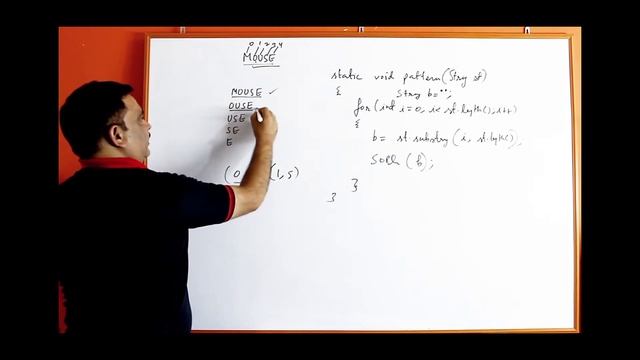 0 1 2 3 4
MOUSE
MOUSE ✓
OUSE
USE
SE
E
(0 (1,5)
static void pattern (String st)
{ String b="";
for (int i=0, i< st.length(), i++)
{
b= st.substring (i, st.length());
SOPln (b);
}
}